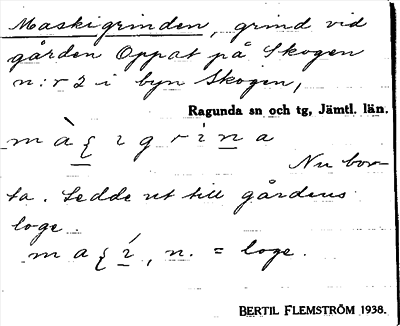 Maskigrinden, grind vid
gården Oppat på Skogen
n:r 2 i byn Skogen,
Ragunda sn och tg, Jämtl. län.
m à ξ ı g r i n a
Nu bor-
ta. Ledde ut till gårdens
loge.
m a ξ í, n. = loge.
BERTIL FLEMSTRÖM 1938.